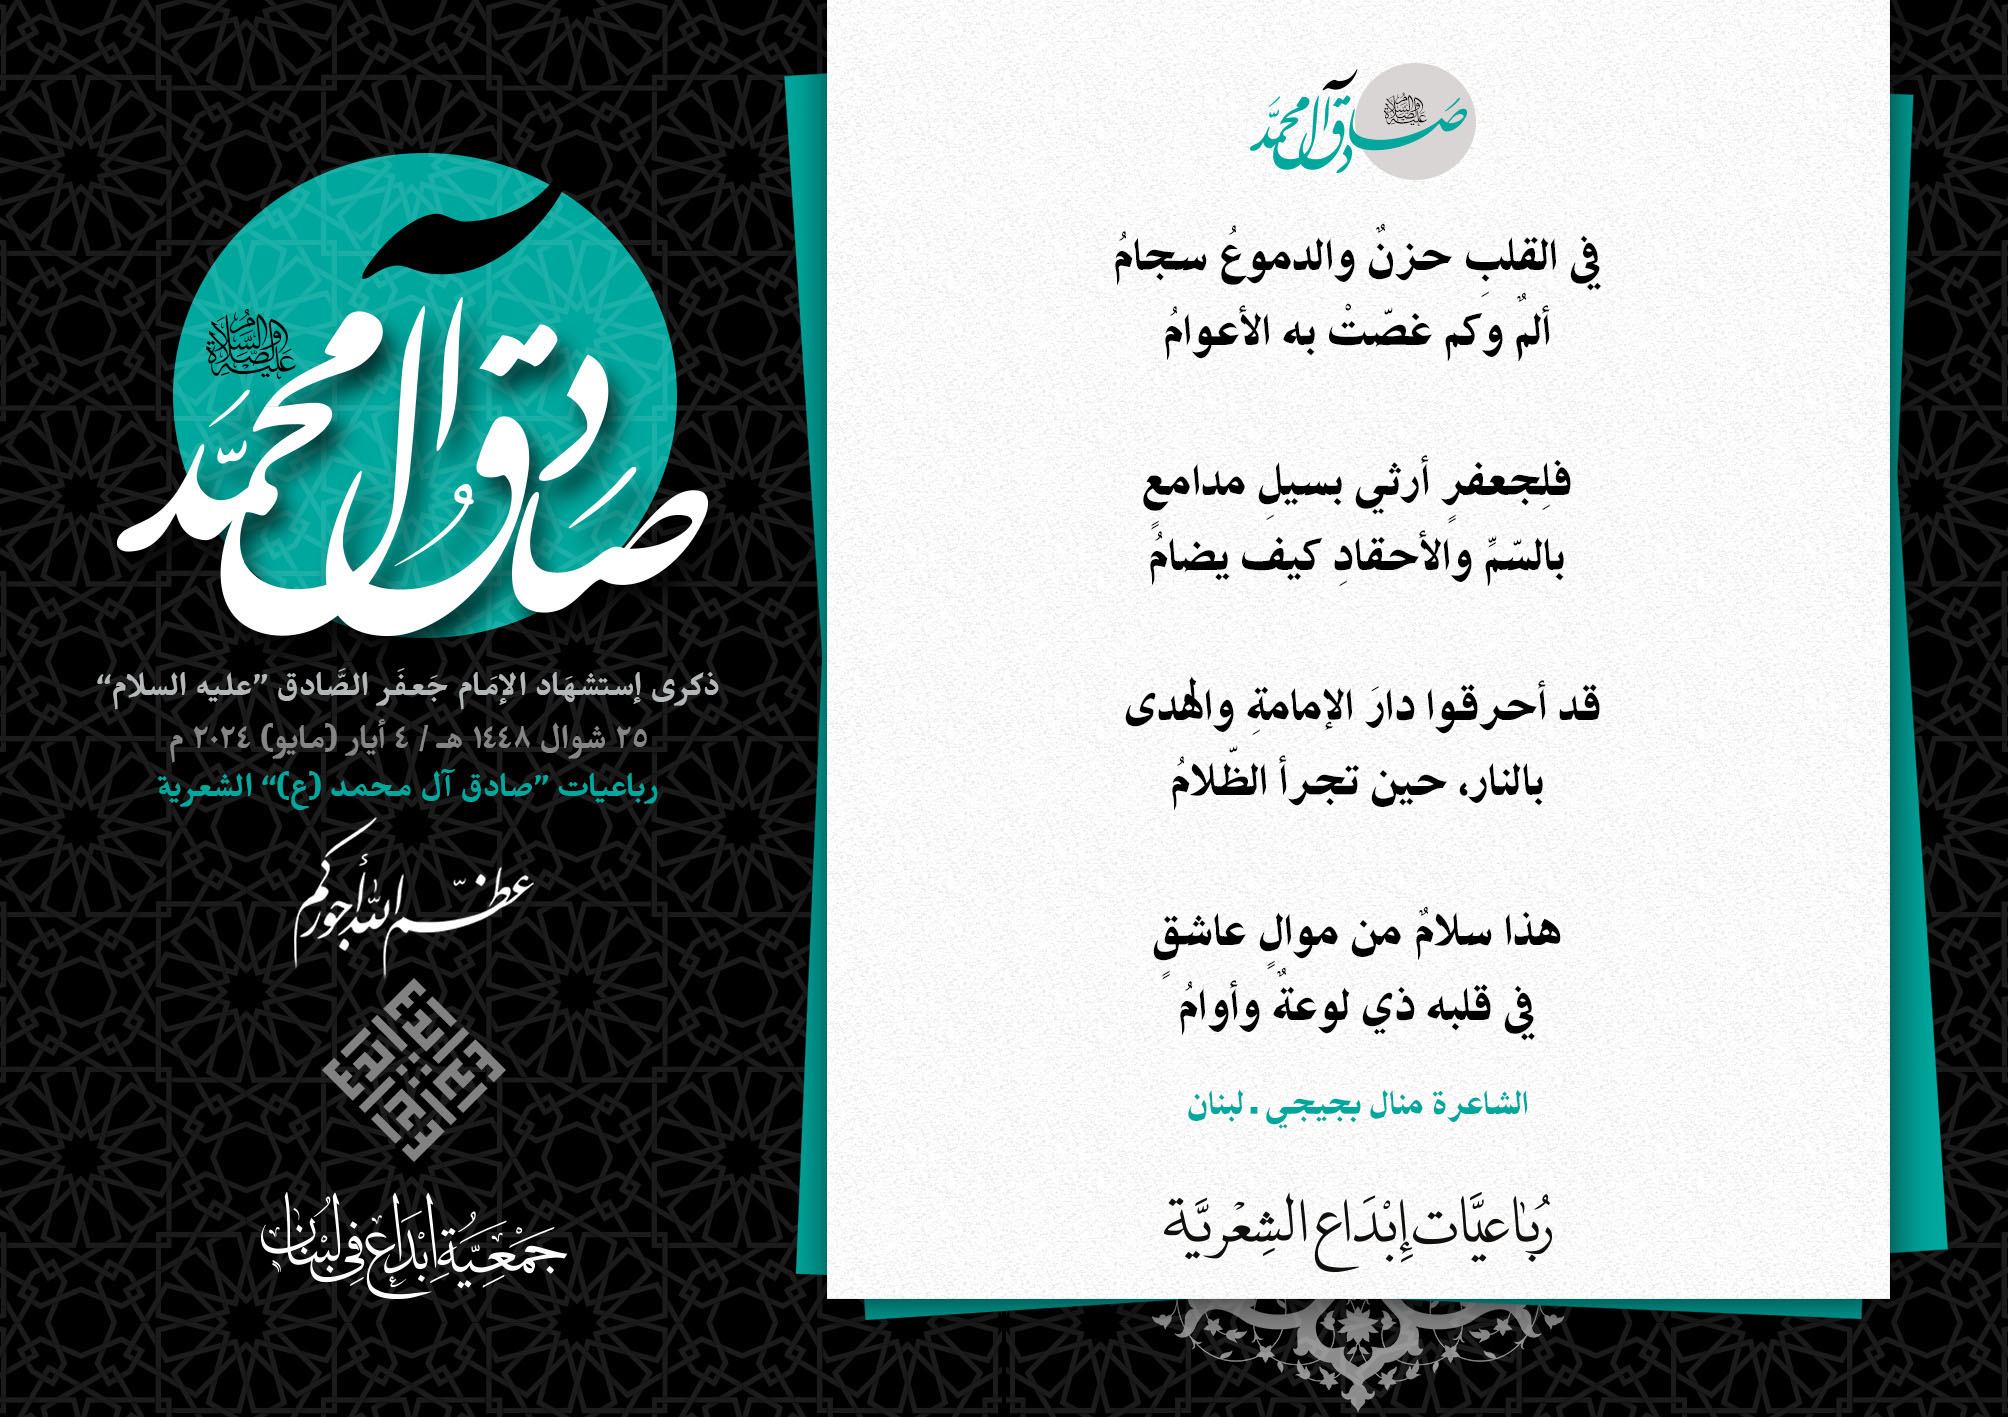 صادق آل محمد
عليه الصلاة والسلام
في القلبِ حزنٌ والدموعُ سجامُ
ألمٌ وكم غصّتْ به الأعوامُ
فلِجعفرٍ أرثي بسيلِ مدامعٍ
بالسّمِّ والأحقادِ كيف يضامُ
قد أحرقوا دارَ الإمامةِ والهدى
بالنار، حين تجرأ الظّلامُ
هذا سلامٌ من موالٍ عاشقٍ
في قلبه ذي لوعةٌ وأوامُ
الشاعرة منال بجيجي ـ لبنان
رُبَاعيَّات إِبْدَاع الشِعْريَّة
صَادِق آل محمَّد
عَليْه الصَّلاة والسَّلامُ
ذكرى إستشهَاد الإمَام جَعفَر الصَّادق ”عليه السلام“
٢٥ شوال ١٤٤٨ هـ / ٤ أيار (مايو) ٢٠٢٤ م
رباعيات ”صادق آل محمد (ع)“ الشعرية
عظّم الله أجوركم
جَمْعِيَّةُ إِبْدَاع فِي لُبْنَان